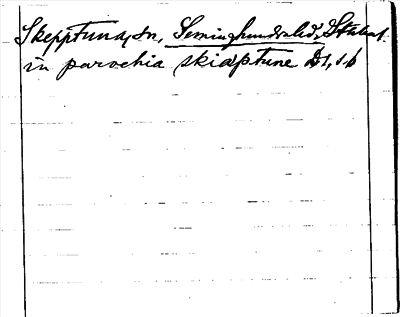 Skepptuna, sn, Seminghundralid, Sthlms l.
in parochia skiæptune D 1, s. b